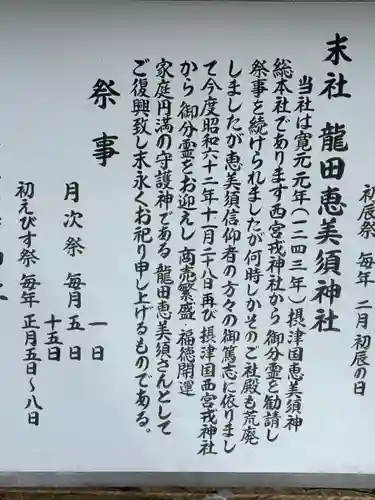 初辰祭 毎年 二月 初辰の日
末社 龍田恵美須神社
当社は寛元元年（一二四三年）摂津国恵美須神
総本社であります西宮戎神社から御分霊を勧請し
祭事を続けられましたが何時しかそのご社殿も荒廃
しましたが恵美須信仰者の方々の御篤志に依りまし
て今度昭和六十二年十一月二十八日再び摂津国西宮戎神社
から御分霊をお迎えし商売繁盛・福徳開運
家庭円満の守護神である龍田恵美須さんとして
ご復興致し末永くお祀り申し上げるものである。
祭事
月次祭 毎月 一日
五日
十五日
初えびす祭 毎年 正月五日〜八日